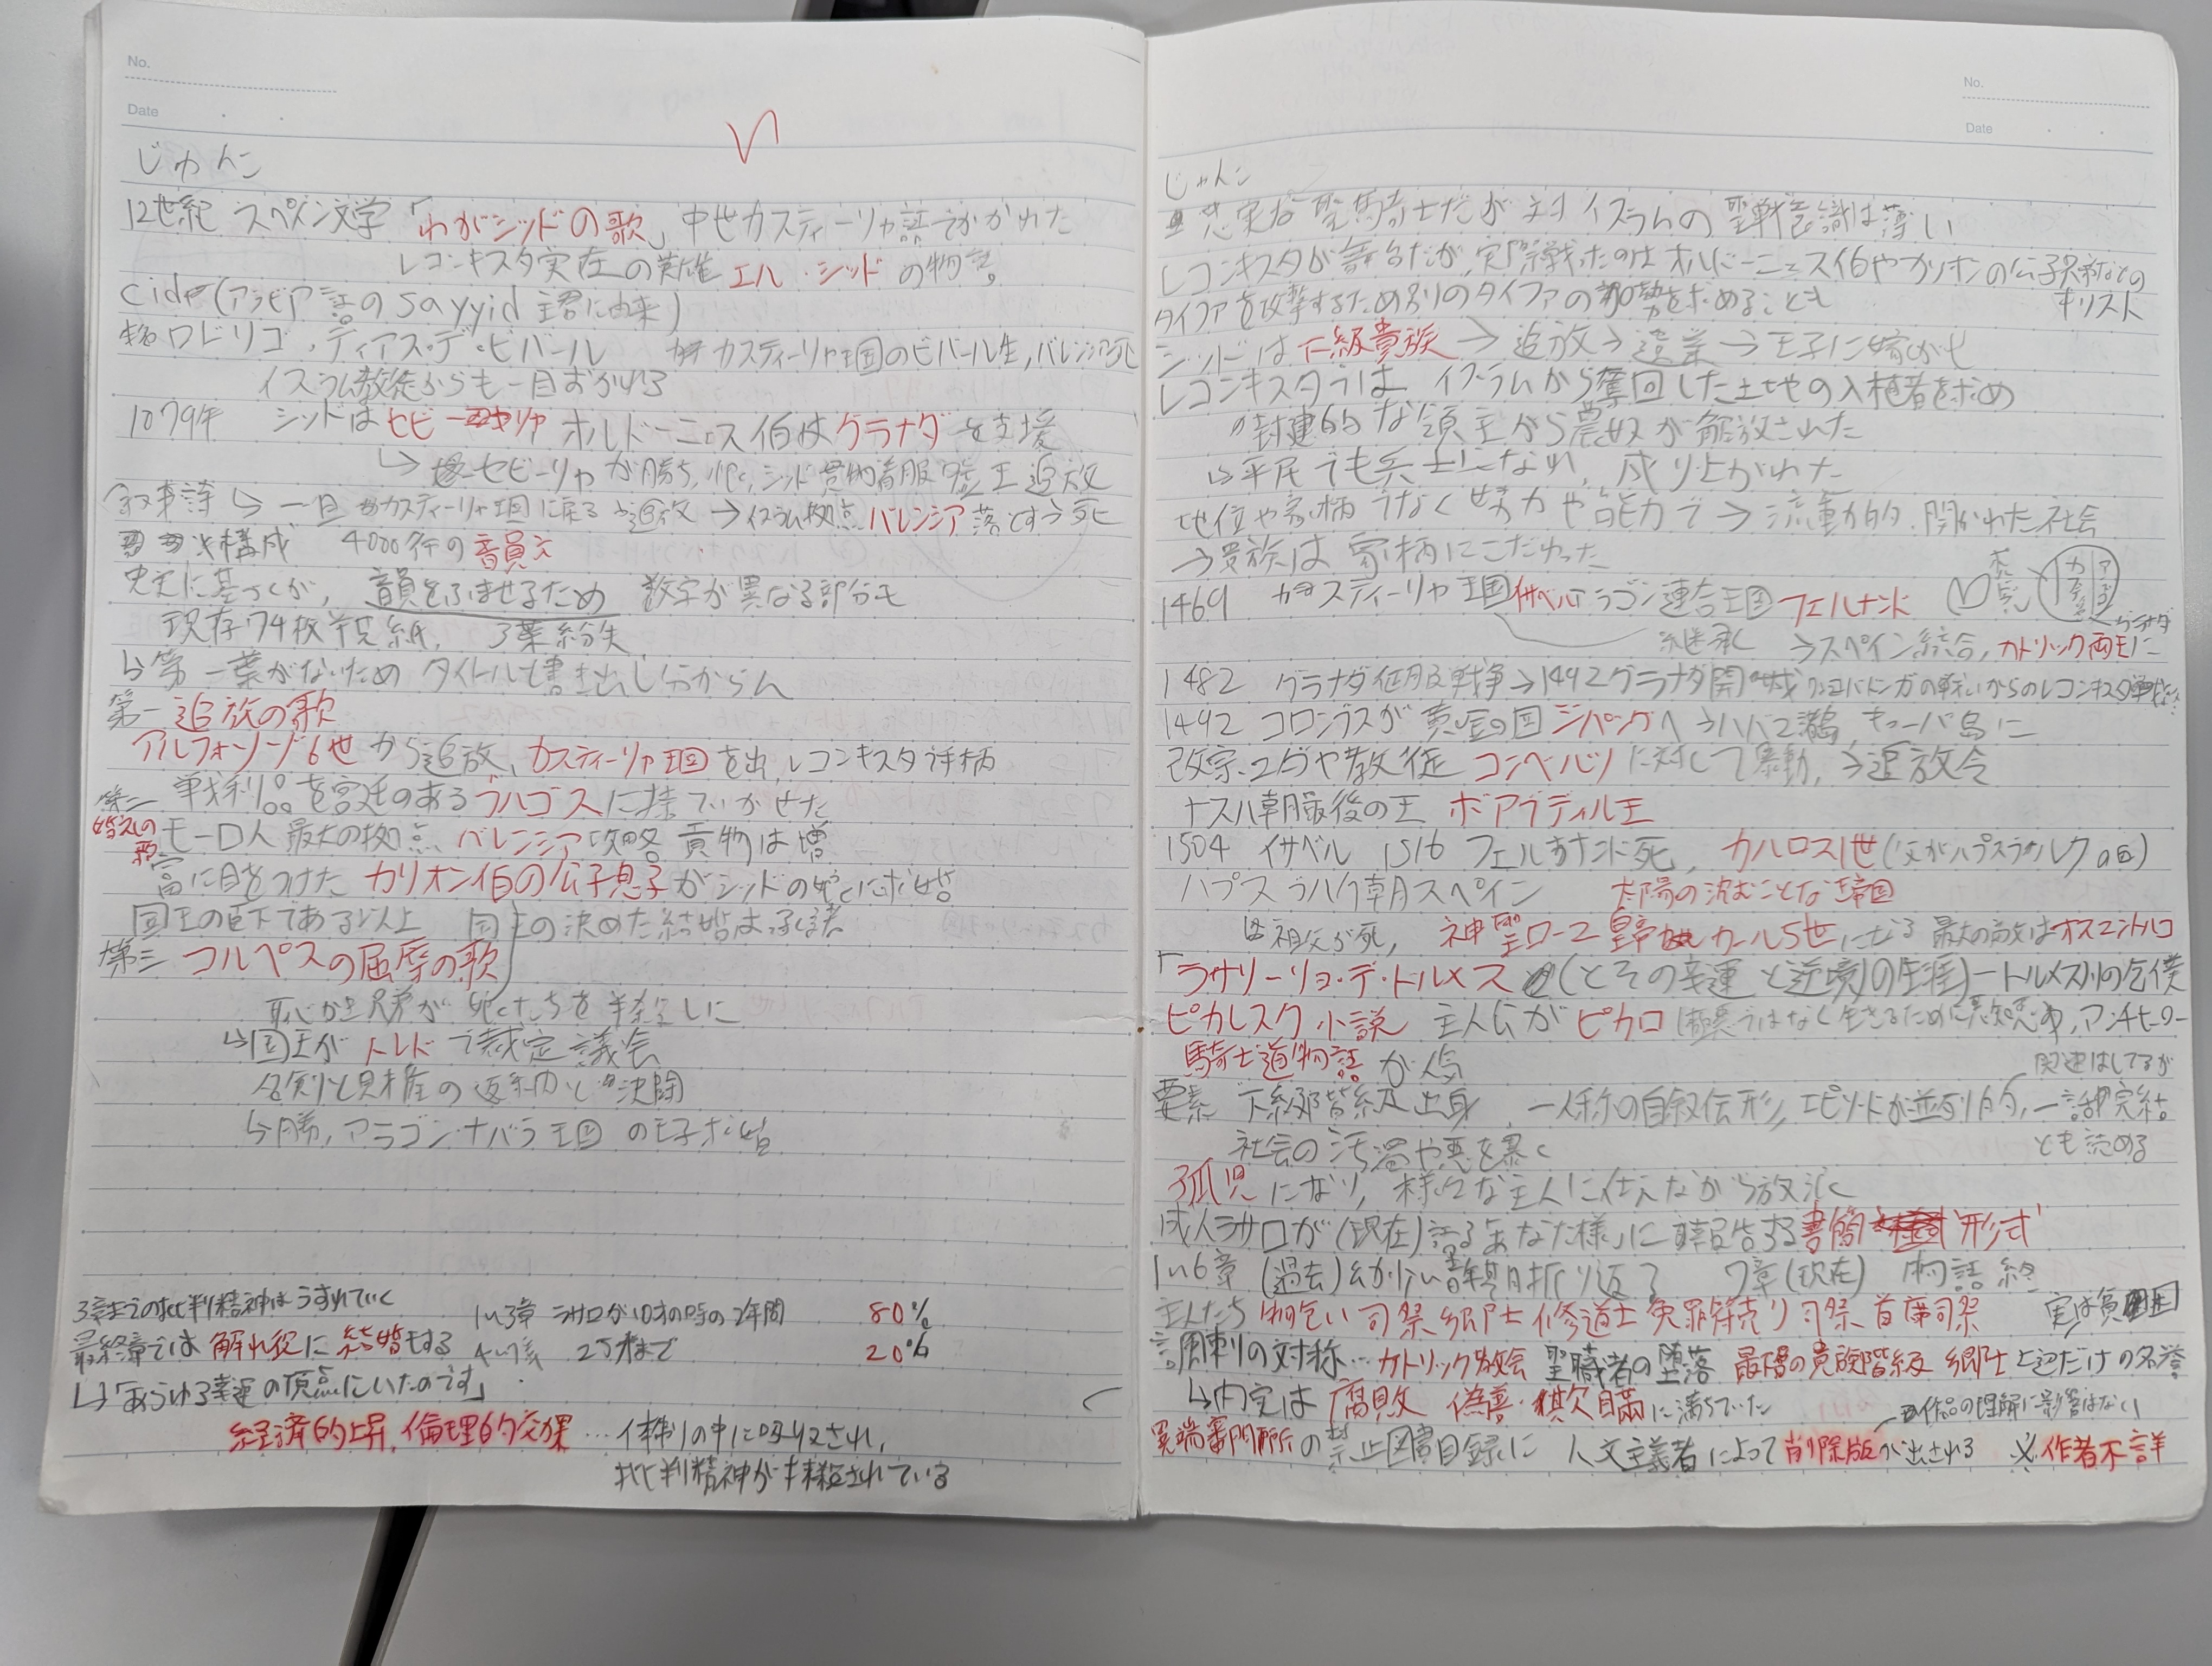 No.
Date
じゅんこ
12世紀 スペイン文学「わがシッドの歌」中世カスティーリャ語でかかれた
レコンキスタ実在の英雄エル・シッドの物語。
cid(アラビア語のsayyid 主君に由来)
本名ロドリゴ・ディアス・デ・ビバール カスティーリャ王国のビバール生,バレンシア死
イスラム教徒からも一目おかれる
1079年 シッドはセビーリャ オルドーニェス伯はグラナダを支援
↳ セビーリャが勝ち, シッド貢物着服 王 追放
叙事詩 ↳ 一旦 カスティーリャ王国に戻る →追放 →イスラム拠点バレンシア落とす→死
構成 4000行の音韻文
史実に基づくが, 音韻をふませるため 数字が異なる部分も
現存74枚羊皮紙, 3葉紛失
↳第一葉がないため タイトルも書き出しも分からん
第一 追放の歌
アルフォンソ6世から追放、カスティーリャ王国を出,レコンキスタで手柄
戦利品を宮廷のあるブルゴスに持っていかせた
第二 婚礼の歌 モーロ人最大の拠点 バレンシア攻略 貢物は増
富に目をつけた カリオン伯の公子息子がシッドの娘に求婚
国王の臣下である以上 国王の決めた結婚は承諾
第三 コルペスの屈辱の歌
恥かき兄弟が娘たちを半殺しに
↳国王がトレドで裁定議会
名剣と財産の返納と決闘
↳勝,アラゴン・ナバラ王国の王子求婚
3章までの批判精神はうすれていく 1〜3章 ラサロが10才の時の2年間 80%
最終章では 解れ役に結婚もする 4〜7章 25才まで 20%
↳「あらゆる幸運の頂点にいたのです」
経済的上昇,倫理的交渉…体制の中に吸収され,
批判精神が抹殺されている
No.
Date
じゅんこ
忠実な聖騎士だが対イスラムの聖戦意識は薄い
レコンキスタが舞台だが,実際戦ったのはオルドーニェス伯やカリオンの公子兄弟などのキリスト
タイファを攻撃するため別のタイファの加勢を求めることも
シッドは下級貴族→追放→偉業→王子に嫁がせ
レコンキスタでは イスラムから奪回した土地の入植者を求め
封建的な領主から農奴が解放された
↳平民でも兵士になれ,成り上がれた
地位や家柄でなく努力や能力で→流動的,開かれた社会
→貴族は家柄にこだわった
1469 カスティーリャ王国イサベル アラゴン連合王国フェルナンド
継承 →スペイン統合,カトリック両王に グラナダ
1482 グラナダ征服戦争→1492グラナダ開城 コバドンガの戦いからのレコンキスタ
1492 コロンブスが黄金の国ジパングへ→バハマ諸,キューバ島に
改宗ユダヤ教徒 コンベルソに対して暴動,→追放令
ナスル朝最後の王 ボアブディル王
1504 イサベル 1516 フェルナンド死, カルロス1世(父がハプスブルクの自)
ハプスブルク朝スペイン 太陽の沈むことなき帝国
祖父が死, 神聖ローマ皇帝カール5世になる 最大の敵はオスマントルコ
「ラサリーリョ・デ・トルメス(とその幸運と逆境)の生涯」ートルメス川の
ピカレスク小説 主人公がピカロ 極悪ではなく生きるために悪知恵,アンチヒーロー
騎士道物語が人気
要素 下級階級出身 一人称の自叙伝形, エピソードが並列的,一話完結とも読める 関連はしてるが
社会の汚濁や悪を暴く
孤児になり,様々な主人に仕えながら放浪
成人ラサロが(現在)語る「あなた様」に報告する書簡形式
1〜6章(過去)幼少時期折り返る 7章(現在)物語終
主人たち 物乞い 司祭 郷士 修道士 免罪符売り 司祭 首席司祭 実は貧困
諷刺の対称…カトリック教会 聖職者の堕落 最下層の貴族階級 郷士 上辺だけの名誉
↳内実は 腐敗 偽善・欺瞞に満ちていた
異端審問所の禁止図書目録に 人文主義者によって削除版が出される ※作者不詳
作品の理解に影響はない